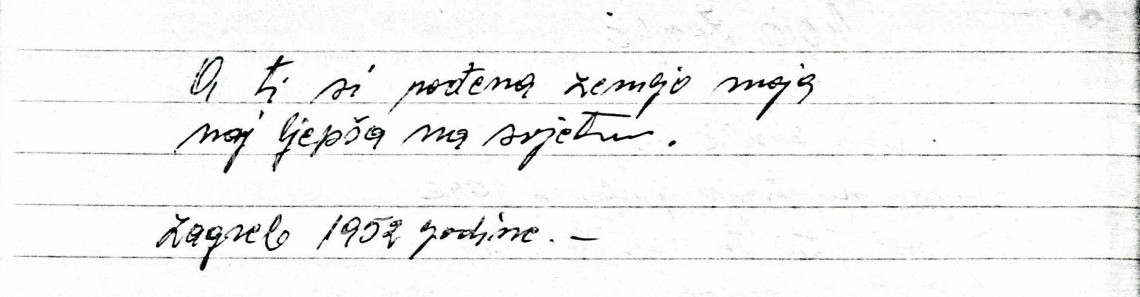 A ti si rođena zemjo moja
naj ljepša na svjetu.
Zagreb 1952 godine. –